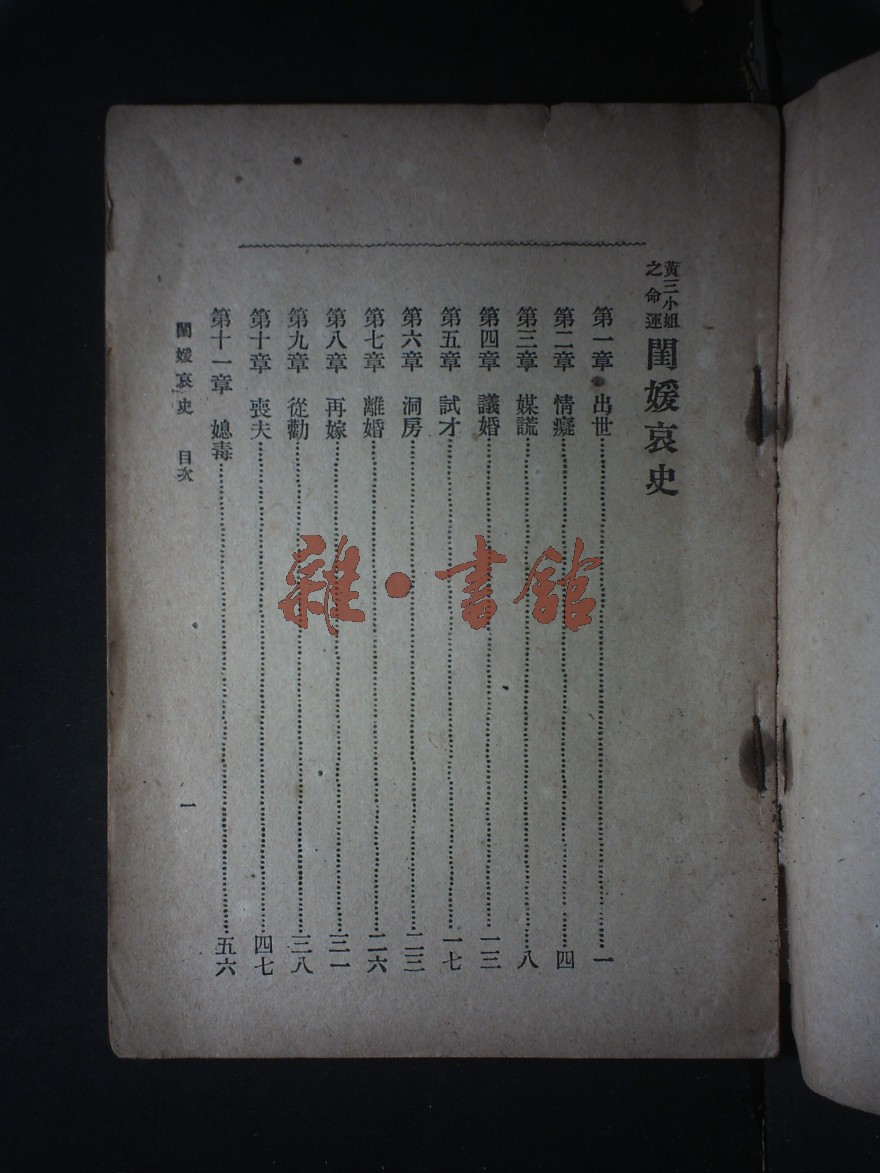 黃三小姐之命運 閨媛哀史
第一章 出世 一
第二章 情癡 四
第三章 媒謊 八
第四章 議婚 一三
第五章 試才 一七
第六章 洞房 二三
第七章 離婚 二六
第八章 再嫁 三一
第九章 從勸 三八
第十章 喪夫 四七
第十一章 媳毒 五六
閨媛哀史 目次 一
雜·書館